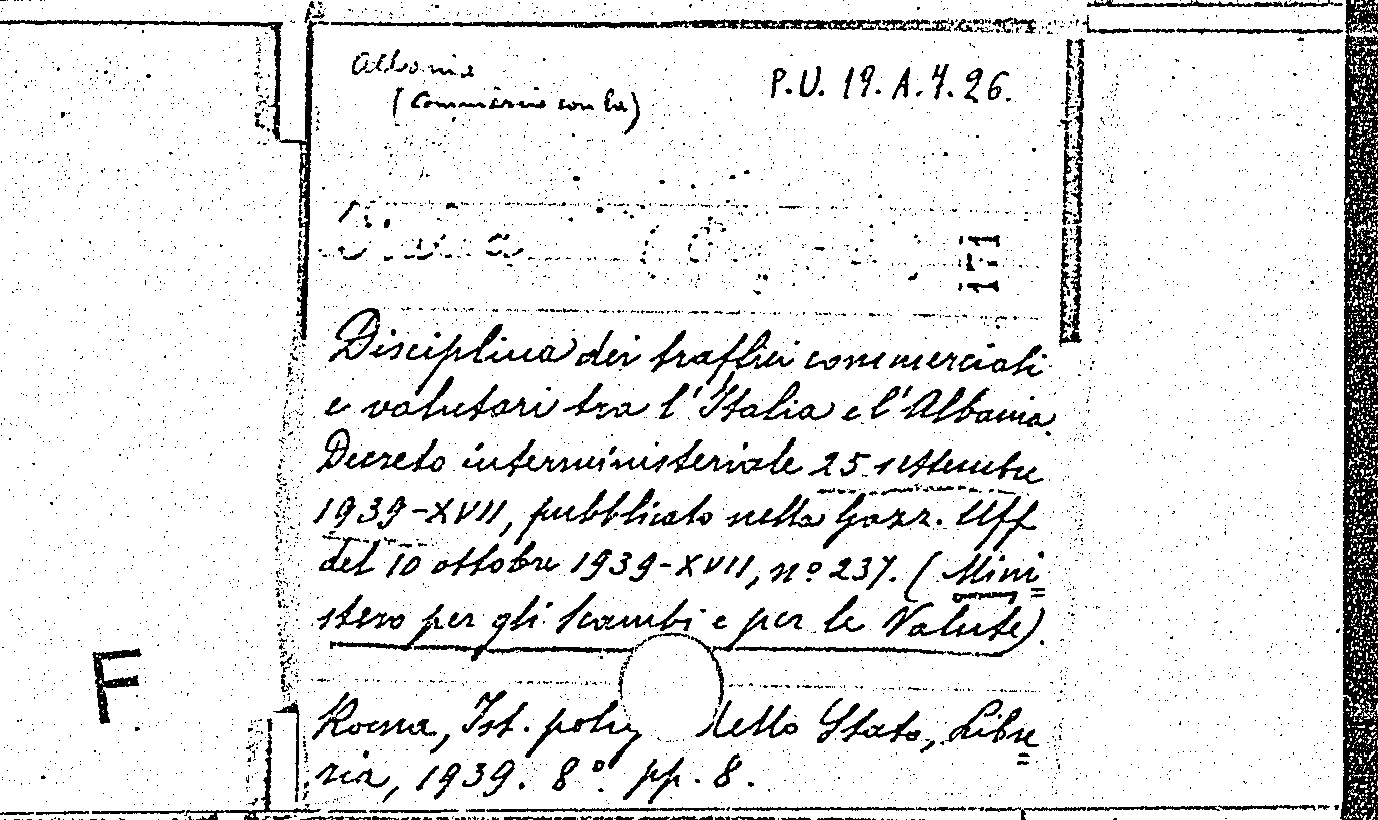 Albania P.U. 19. A. 4. 26.
(Commercio con la)
Disciplina dei traffici commerciali
e valutari tra l'Italia e l'Albania.
Decreto interministeriale 25 settembre
1939-XVII, pubblicato nella Gazz. Uff
del 10 ottobre 1939-XVII, nº 237. (Mini=
stero per gli Scambi e per le Valute).
Roma, Ist. dello Stato, Libre=
ria, 1939. 8º. pp. 8.
F